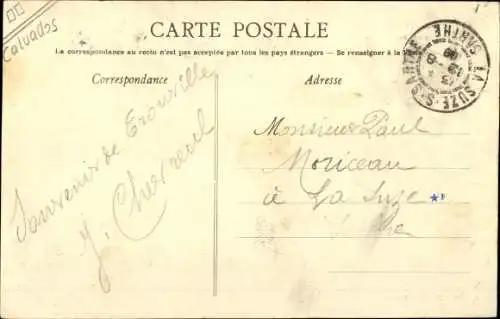 Calvados
CARTE POSTALE
La correspondance au recto n'est pas acceptée par tous les pays étrangers — Se renseigner à la
Correspondance
Adresse
LA SUZE-S-SARTHE
SARTHE
Souvenir de Trouville
Monsieur Paul
Moriceau
à La Suze